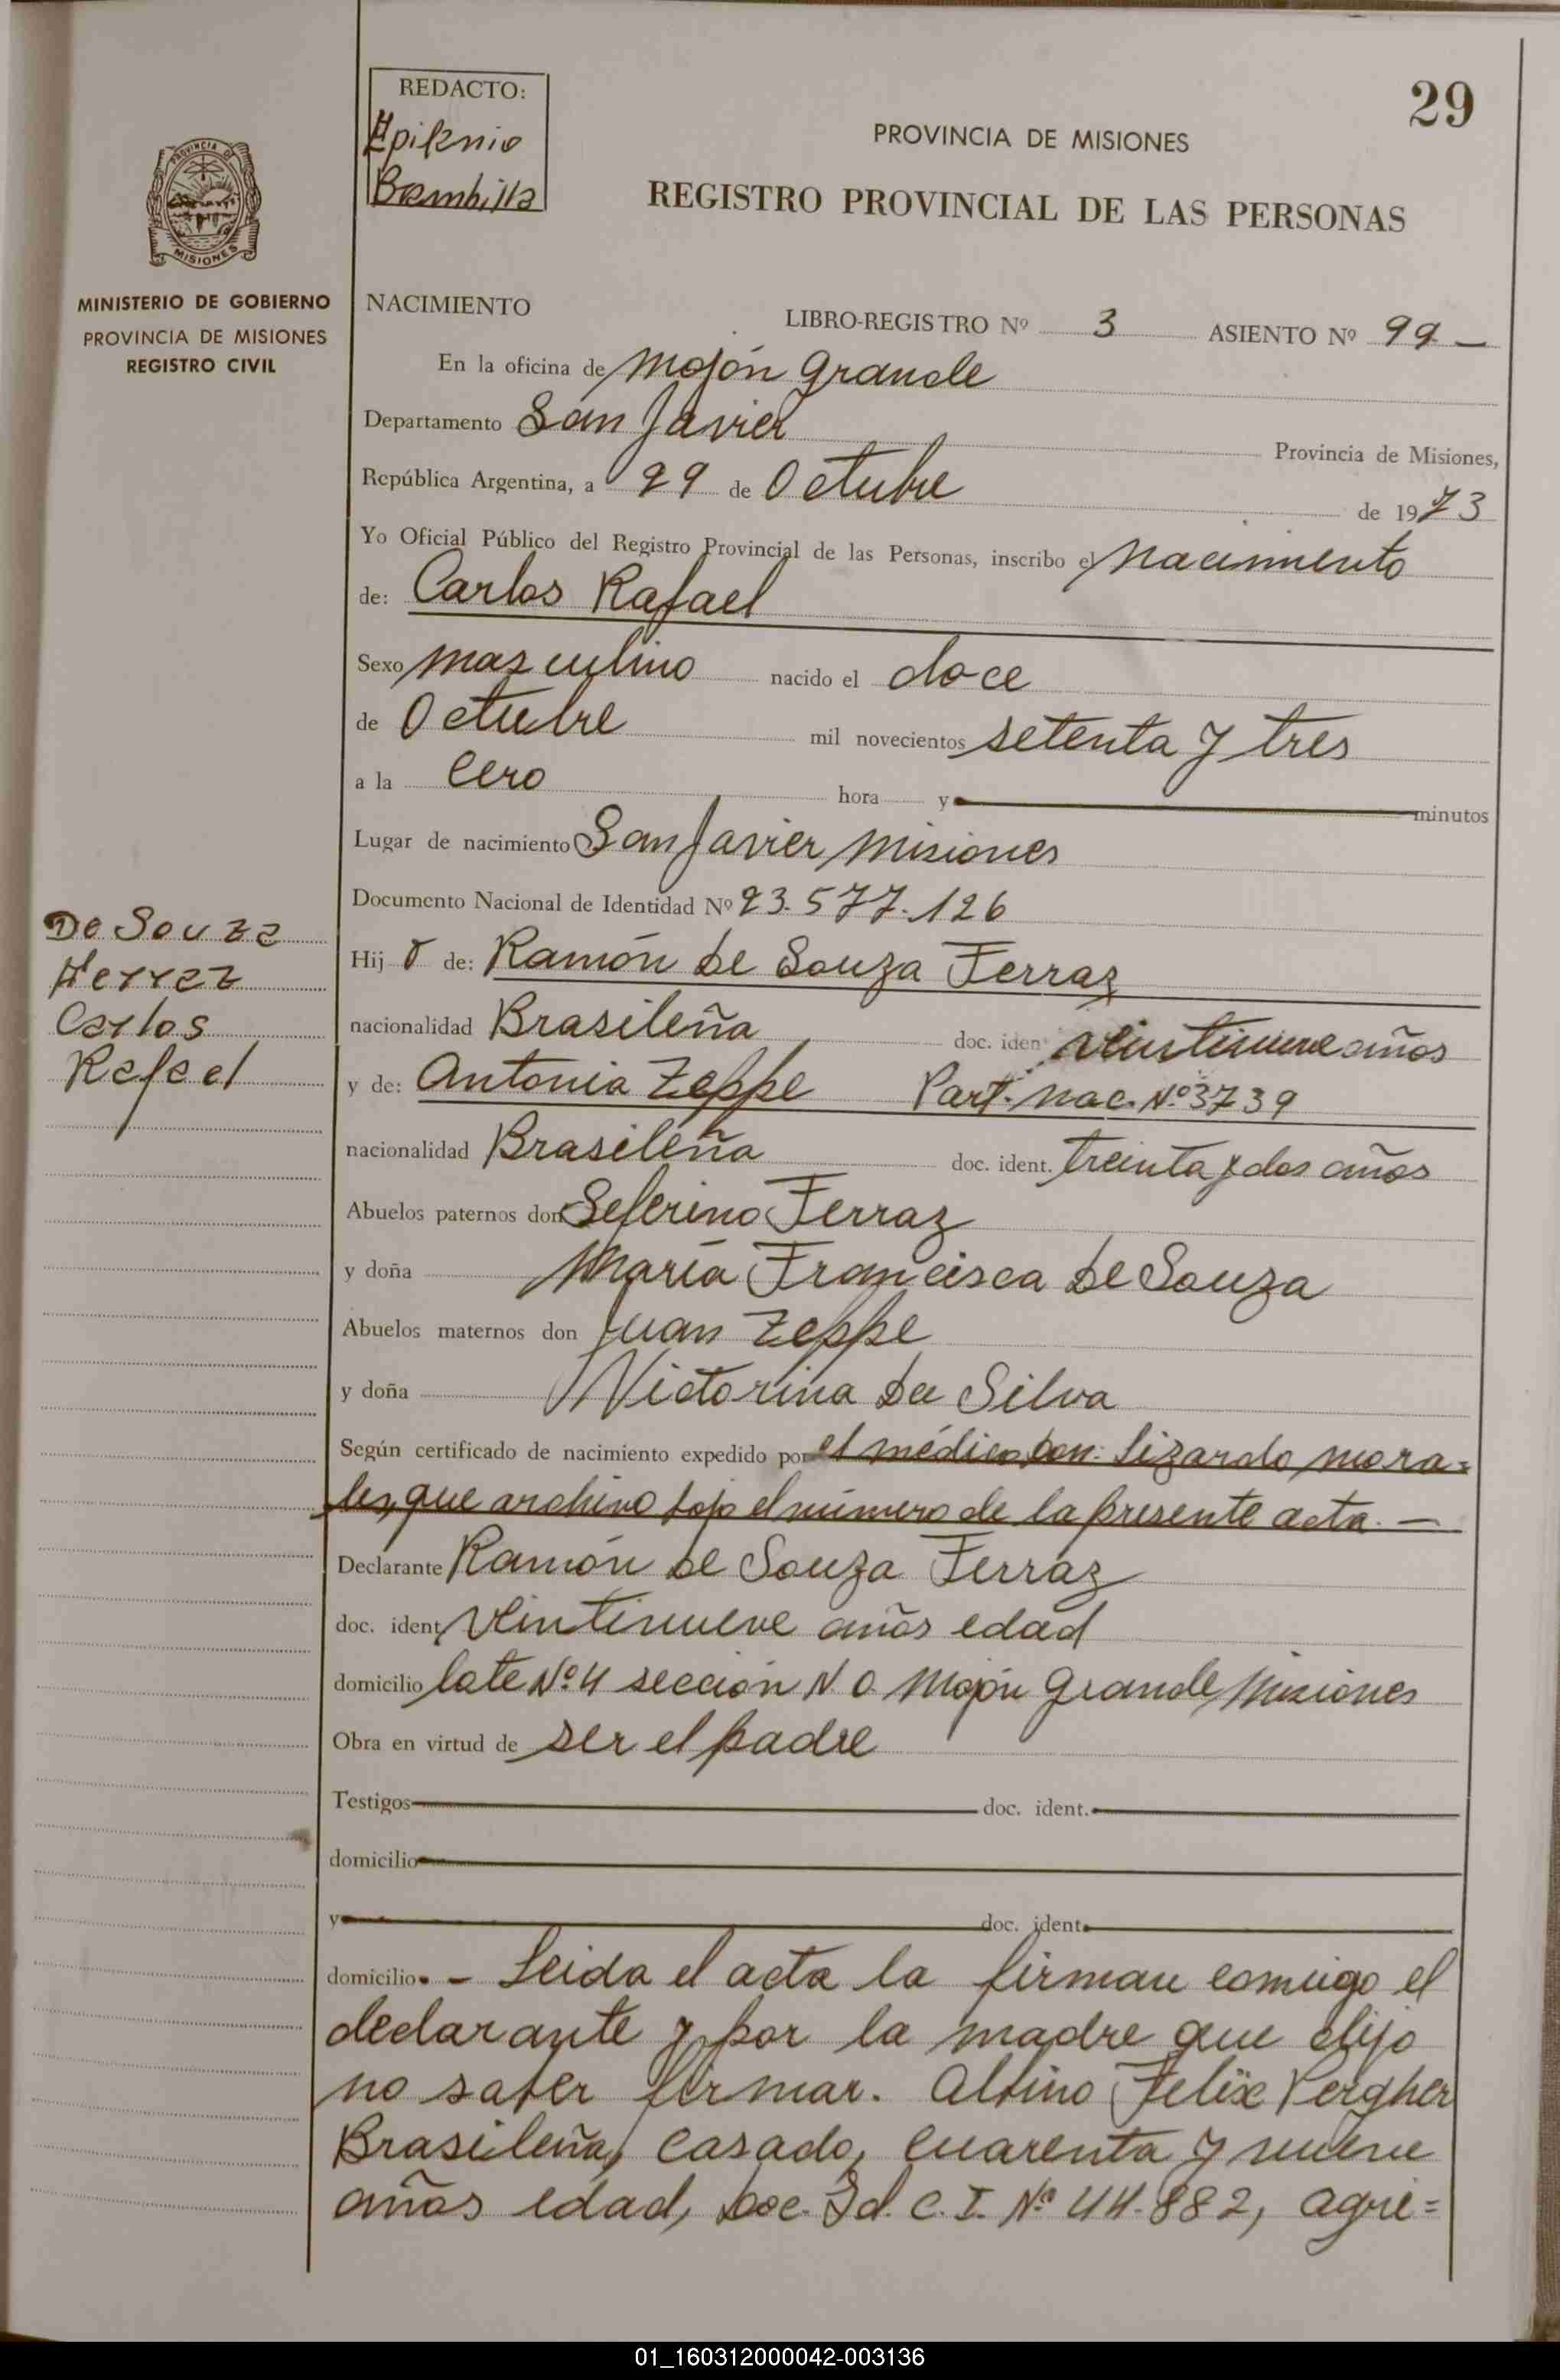 29
REDACTO:
Epifenio
Brambilla
PROVINCIA DE MISIONES
REGISTRO PROVINCIAL DE LAS PERSONAS
PROVINCIA DE
MISIONES
MINISTERIO DE GOBIERNO
PROVINCIA DE MISIONES
REGISTRO CIVIL
NACIMIENTO
LIBRO-REGISTRO Nº 3 ASIENTO Nº 99 —
En la oficina de Mojón Grande
Departamento San Javier Provincia de Misiones,
República Argentina, a 29 de Octubre de 1973
Yo Oficial Público del Registro Provincial de las Personas, inscribo el nacimiento
de: Carlos Rafael
Sexo masculino nacido el doce
de Octubre mil novecientos setenta y tres
a la cero hora y minutos
Lugar de nacimiento San Javier Misiones
Documento Nacional de Identidad Nº 23.577.126
De Souza
Ferraz
Carlos
Rafael
Hij o de: Ramón de Souza Ferraz
nacionalidad Brasileña doc. iden veintinueve años
y de: Antonia Zeppe Part. Nac. Nº 3739
nacionalidad Brasileña doc. ident. treinta y dos años
Abuelos paternos don Seferino Ferraz
y doña María Francisca de Souza
Abuelos maternos don Juan Zeppe
y doña Victorina da Silva
Según certificado de nacimiento expedido por el médico Don: Lizardo Mora=
les, que archivo bajo el número de la presente acta. —
Declarante Ramón de Souza Ferraz
doc. ident veintinueve años edad
domicilio lote Nº 4 sección N O Mojón Grande Misiones
Obra en virtud de ser el padre
Testigos doc. ident.
domicilio
y doc. ident.
domicilio. – Leida el acta la firman comigo el
declarante y por la madre que dijo
no saber firmar. Albino Felix Pergher
Brasileña, casado, cuarenta y nueve
años edad, Doc. Id. C. I. Nº 44.882, agri=
01_160312000042-003136